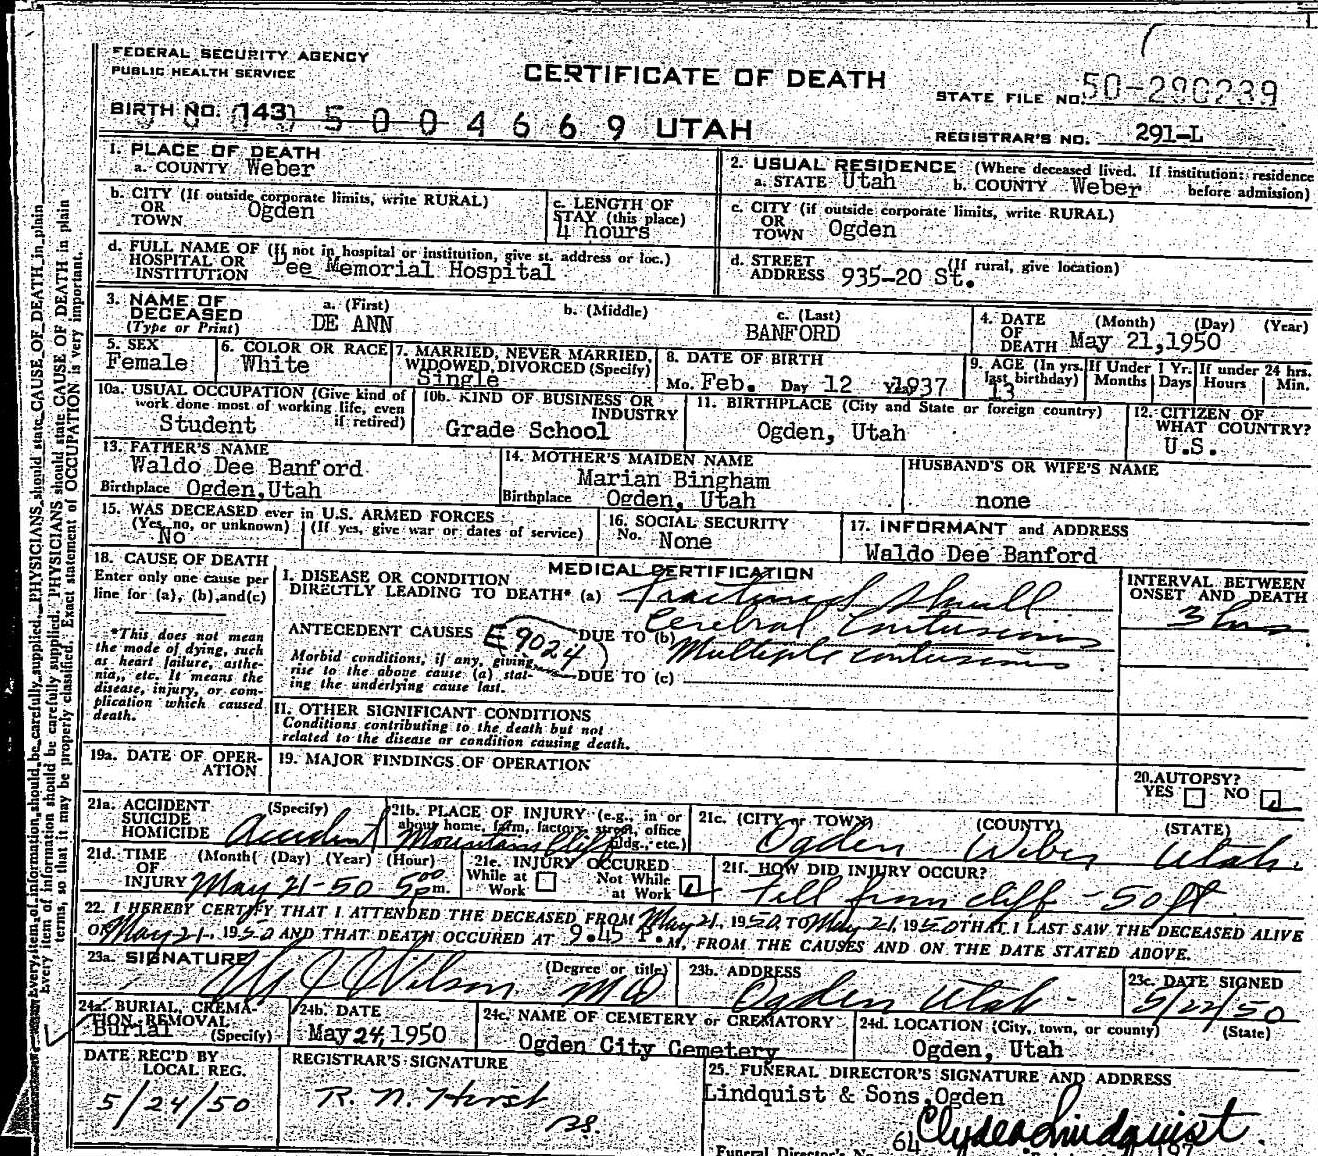 FEDERAL SECURITY AGENCY
PUBLIC HEALTH SERVICE
CERTIFICATE OF DEATH
STATE FILE NO. 50-290239
BIRTH NO. 143 5004669 UTAH
REGISTRAR'S NO. 291-L
1. PLACE OF DEATH
a. COUNTY Weber
2. USUAL RESIDENCE (Where deceased lived. If institution: residence
a. STATE Utah b. COUNTY Weber before admission)
b. CITY (If outside corporate limits, write RURAL)
OR
TOWN Ogden
c. LENGTH OF
STAY (this place)
4 hours
c. CITY (if outside corporate limits, write RURAL)
OR
TOWN Ogden
d. FULL NAME OF (If not in hospital or institution, give st. address or loc.)
HOSPITAL OR
INSTITUTION Dee Memorial Hospital
d. STREET (If rural, give location)
ADDRESS 935-20 St.
3. NAME OF
DECEASED
(Type or Print)
a. (First) b. (Middle) c. (Last)
DE ANN BANFORD
4. DATE (Month) (Day) (Year)
OF
DEATH May 21, 1950
5. SEX
Female
6. COLOR OR RACE
White
7. MARRIED, NEVER MARRIED,
WIDOWED, DIVORCED (Specify)
Single
8. DATE OF BIRTH
Mo. Feb. Day 12 1937
9. AGE (In yrs.
last birthday)
13
If Under 1 Yr.
Months Days
If under 24 hrs.
Hours Min.
10a. USUAL OCCUPATION (Give kind of
work done most of working life, even
if retired)
Student
10b. KIND OF BUSINESS OR
INDUSTRY
Grade School
11. BIRTHPLACE (City and State or foreign country)
Ogden, Utah
12. CITIZEN OF
WHAT COUNTRY?
U.S.
13. FATHER'S NAME
Waldo Dee Banford
Birthplace Ogden, Utah
14. MOTHER'S MAIDEN NAME
Marian Bingham
Birthplace Ogden, Utah
HUSBAND'S OR WIFE'S NAME
none
15. WAS DECEASED ever in U.S. ARMED FORCES
(Yes, no, or unknown) (If yes, give war or dates of service)
No
16. SOCIAL SECURITY
No. None
17. INFORMANT and ADDRESS
Waldo Dee Banford
18. CAUSE OF DEATH
Enter only one cause per
line for (a), (b), and (c)
*This does not mean
the mode of dying, such
as heart failure, asthe-
nia, etc. It means the
disease, injury, or com-
plication which caused
death.
MEDICAL CERTIFICATION
I. DISEASE OR CONDITION
DIRECTLY LEADING TO DEATH* (a) Fractured Skull
ANTECEDENT CAUSES E 9024 DUE TO (b) Cerebral Contusions
Multiple contusions
Morbid conditions, if any, giving
rise to the above cause (a) stat-
ing the underlying cause last.
DUE TO (c)
INTERVAL BETWEEN
ONSET AND DEATH
3 hrs
II. OTHER SIGNIFICANT CONDITIONS
Conditions contributing to the death but not
related to the disease or condition causing death.
19a. DATE OF OPER-
ATION
19. MAJOR FINDINGS OF OPERATION
20. AUTOPSY?
YES NO
21a. ACCIDENT (Specify)
SUICIDE
HOMICIDE Accident
21b. PLACE OF INJURY (e.g., in or
about home, farm, factory, street, office
bldg., etc.)
Mountain Cliff
21c. (CITY or TOWN) (COUNTY) (STATE)
Ogden Weber Utah
21d. TIME (Month) (Day) (Year) (Hour)
OF
INJURY May 21-50 5 00 pm.
21e. INJURY OCCURED
While at Work Not While at Work
21f. HOW DID INJURY OCCUR?
Fell from cliff - 50 ft
22. I HEREBY CERTIFY THAT I ATTENDED THE DECEASED FROM May 21, 1950 TO May 21, 1950 THAT I LAST SAW THE DECEASED ALIVE
ON May 21, 1950 AND THAT DEATH OCCURED AT 9:45 P.M, FROM THE CAUSES AND ON THE DATE STATED ABOVE.
23a. SIGNATURE (Degree or title)
Wilson MD
23b. ADDRESS
Ogden Utah
23c. DATE SIGNED
5/22/50
24a. BURIAL, CREMA-
TION REMOVAL
Burial (Specify)
24b. DATE
May 24, 1950
24c. NAME OF CEMETERY or CREMATORY
Ogden City Cemetery
24d. LOCATION (City, town, or county) (State)
Ogden, Utah
DATE REC'D BY
LOCAL REG.
5/24/50
REGISTRAR'S SIGNATURE
R. N. Hirst
25. FUNERAL DIRECTOR'S SIGNATURE AND ADDRESS
Lindquist & Sons, Ogden
Lindquist
Funeral Director's No. 64
Every item of information should be carefully supplied. PHYSICIANS should state CAUSE OF DEATH in plain
Every item of information should be carefully supplied. PHYSICIANS should state CAUSE OF DEATH in plain
terms, so that it may be properly classified. Exact statement of OCCUPATION is very important.